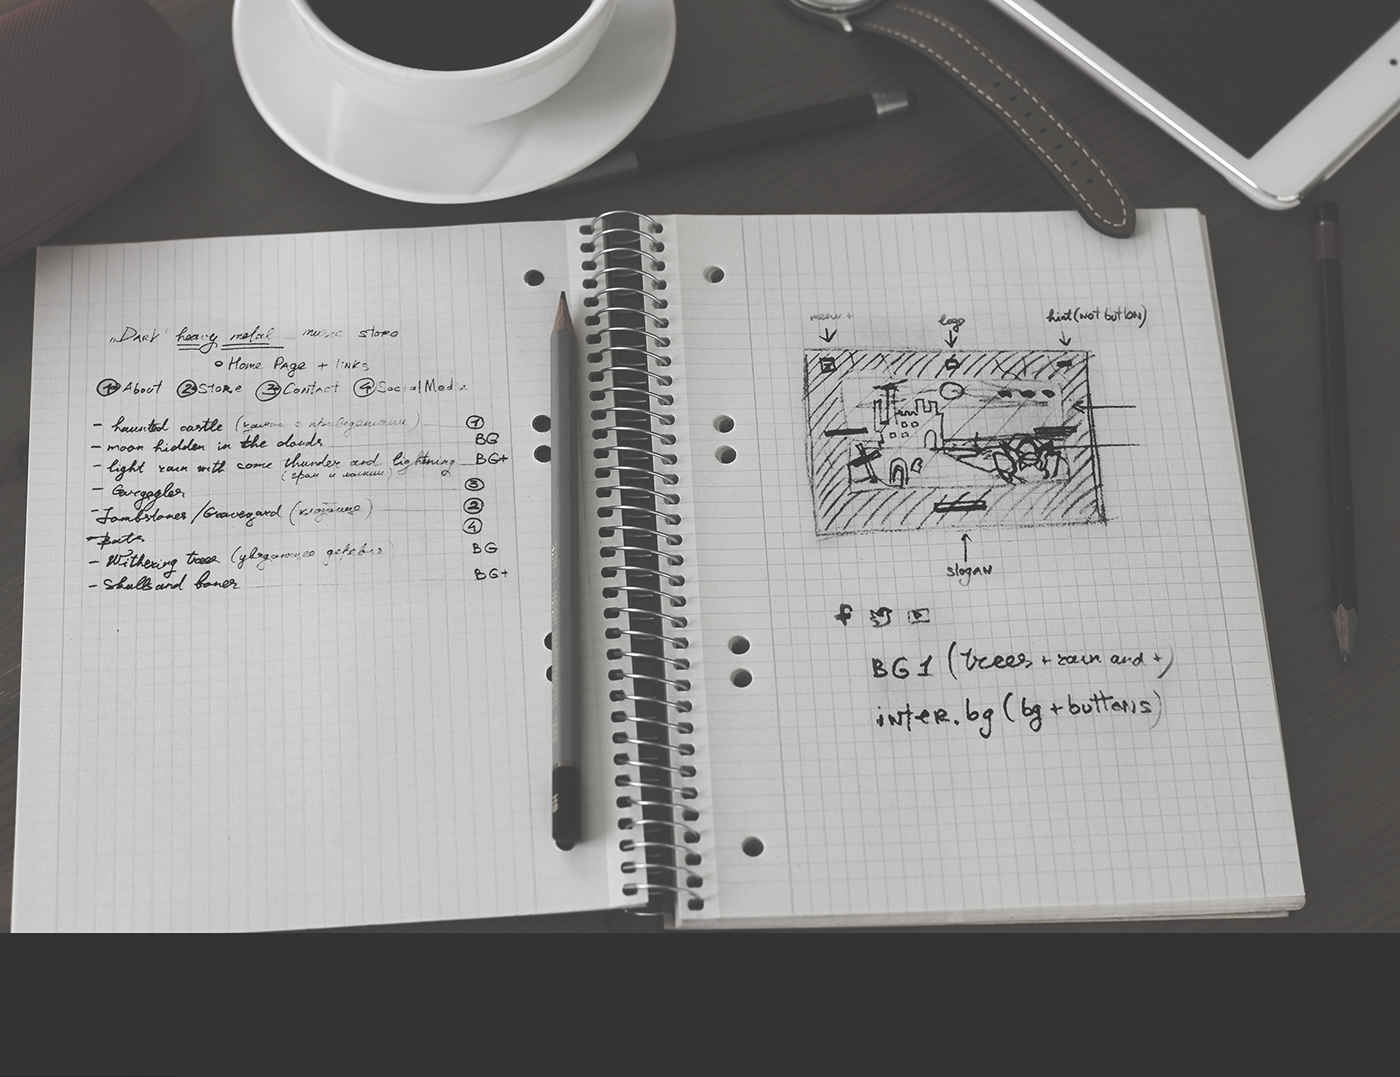 "Dark" heavy metal music store
Home Page + links
1 About 2 Store 3 Contact 4 Social Media
- haunted castle (замок с приведениями) 1
- moon hidden in the clouds BG
- light rain with some thunder and lightning BG+
(гром и молнии)
- 3
- Tombstones / Graveyard (кладбище) 2
- Bats 4
- Withering trees (увядающие деревья) BG
- Skulls and bones BG+
menu
logo
hint (not button)
slogan
f
BG 1 (trees + rain and +)
inter. bg (bg + buttons)